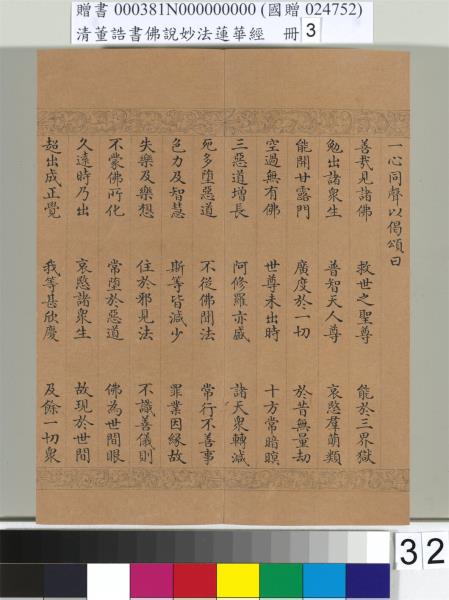 贈書 000381N000000000 (國贈 024752)
清董誥書佛說妙法蓮華經 冊 3
一心同聲以偈頌曰
善哉見諸佛 救世之聖尊 能於三界獄
勉出諸衆生 普智天人尊 哀愍羣萌類
能開甘露門 廣度於一切 於昔無量劫
空過無有佛 世尊未出時 十方常暗暝
三惡道增長 阿修羅亦盛 諸天衆轉減
死多墮惡道 不從佛聞法 常行不善事
色力及智慧 斯等皆減少 罪業因緣故
失樂及樂想 住於邪見法 不識善儀則
不蒙佛所化 常墮於惡道 佛為世間眼
久遠時乃出 哀愍諸衆生 故現於世間
超出成正覺 我等甚欣慶 及餘一切衆
32